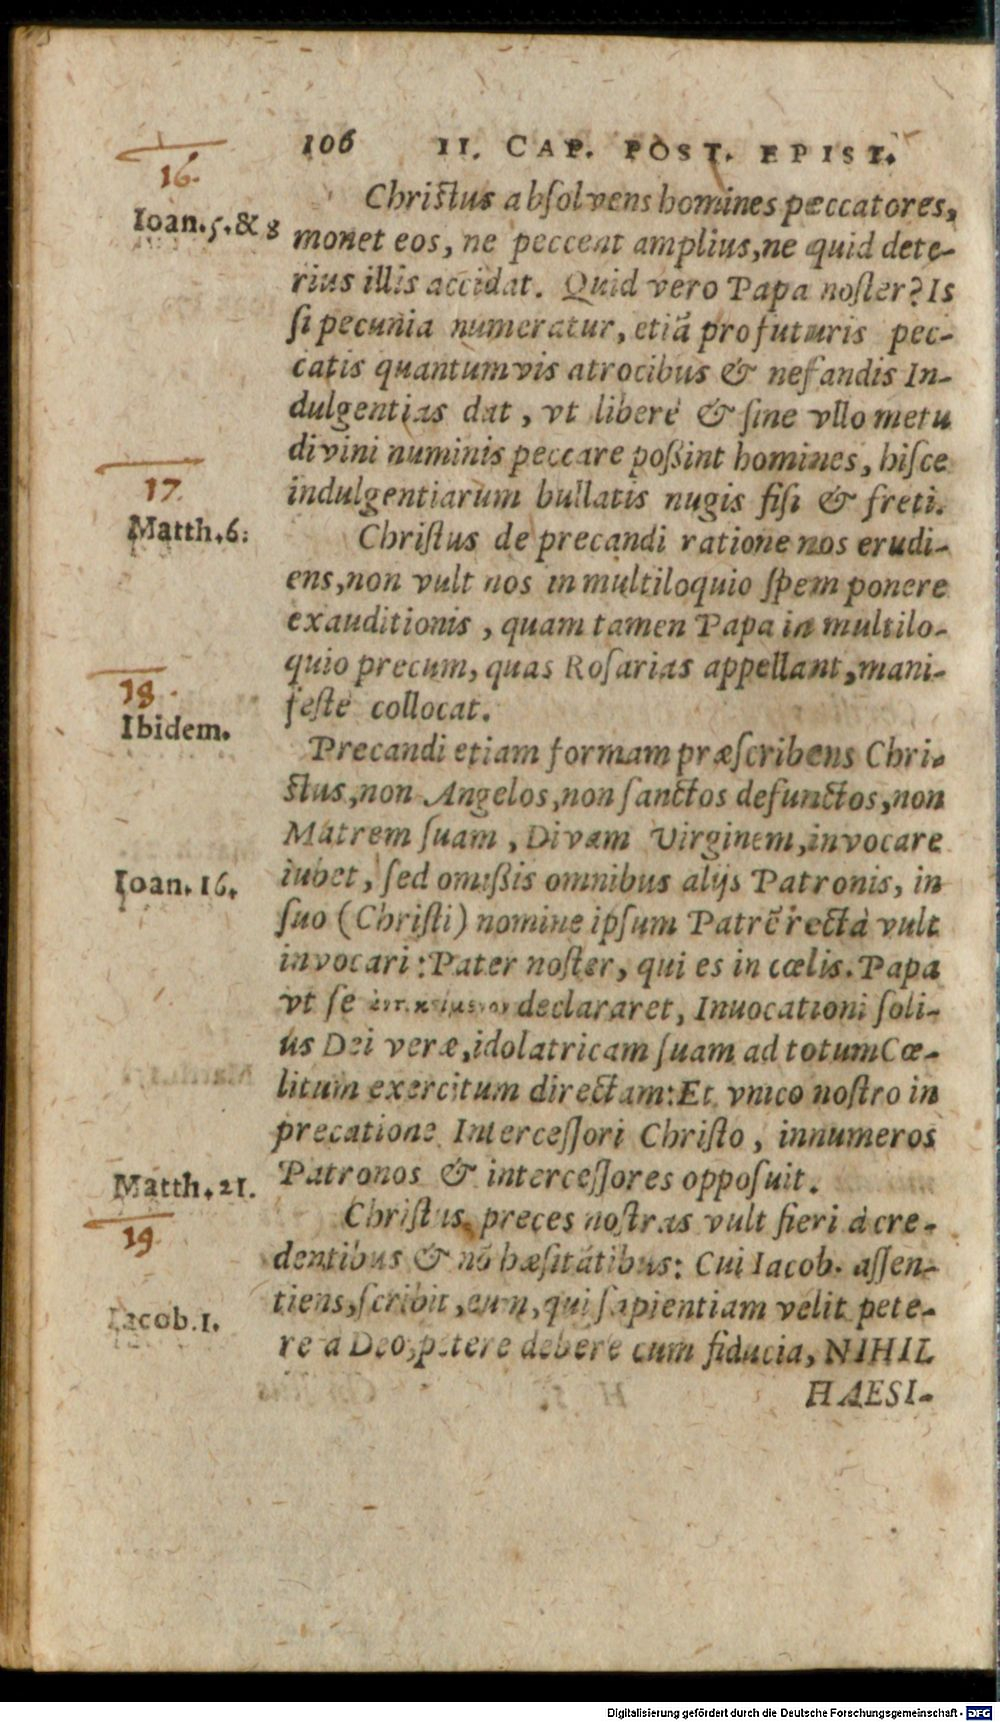 106 II. CAP. POST. EPIST.
16.
Ioan. 5. & 8
Christus absolvens homines peccatores,
monet eos, ne peccent amplius, ne quid dete-
rius illis accidat. Quid vero Papa noster? Is
si pecunia numeratur, etiã pro futuris pec-
catis quantumvis atrocibus & nefandis In-
dulgentias dat, vt liberè & sine vllo metu
divini numinis peccare poßint homines, hisce
indulgentiarum bullatis nugis fisi & freti.
17.
Matth. 6:
Christus de precandi ratione nos erudi-
ens, non vult nos in multiloquio spem ponere
exauditionis, quam tamen Papa in multilo-
quio precum, quas Rosarias appellant, mani-
festè collocat.
18.
Ibidem.
Precandi etiam formam præscribens Chri-
stus, non Angelos, non sanctos defunctos, non
Matrem suam, Divam Virginem, invocare
iubet, sed omißis omnibus alijs Patronis, in
Ioan. 16.
suo (Christi) nomine ipsum Patrẽ rectà vult
invocari: Pater noster, qui es in cœlis. Papa
vt se declararet, Inuocationi soli-
us Dei veræ, idolatricam suam ad totum Cœ-
litum exercitum directam: Et vnico nostro in
precatione Intercessori Christo, innumeros
Patronos & intercessores opposuit.
Matth. 21.
19
Christus preces nostras vult fieri à cre-
dentibus & nõ hæsitãtibus: Cui Iacob. assen-
tiens, scribit, eum, qui sapientiam velit pete-
Iacob. 1.
re a Deo, petere debere cum fiducia, NIHIL
HAESI-
Digitalisierung gefördert durch die Deutsche Forschungsgemeinschaft - DFG